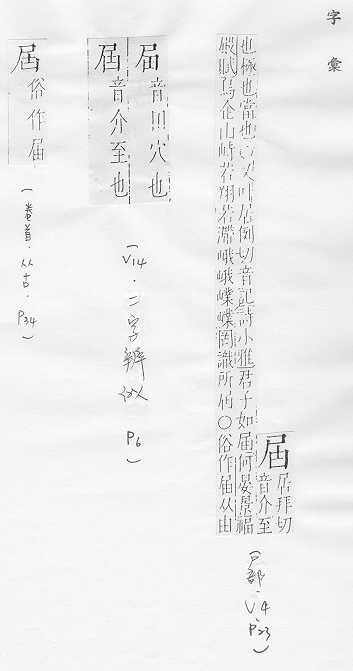 字彙
屆
居拜切
音介至
也極也當也○又叶居例切音記詩小雅君子如屆何晏景福
殿賦鳥企山峙若翔若滯峨峨嶫嶫罔識所屆○俗作届从由
(尸部．V4．P23)
屇音田穴也
屆音介至也
(V14．二字辨似 P6)
屆俗作届
(卷首．从古．P34)